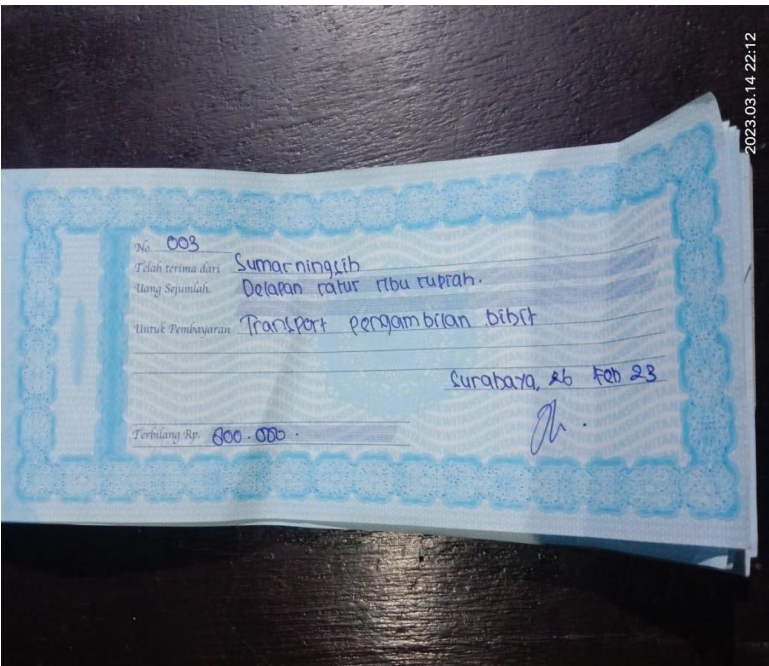 2023.03.14 22:12
No. 003
Telah terima dari Sumarningsih
Uang Sejumlah Delapan ratus ribu rupiah.
Untuk Pembayaran Transport pengambilan bibit
Surabaya, 26 Feb 23
Terbilang Rp. 800.000.